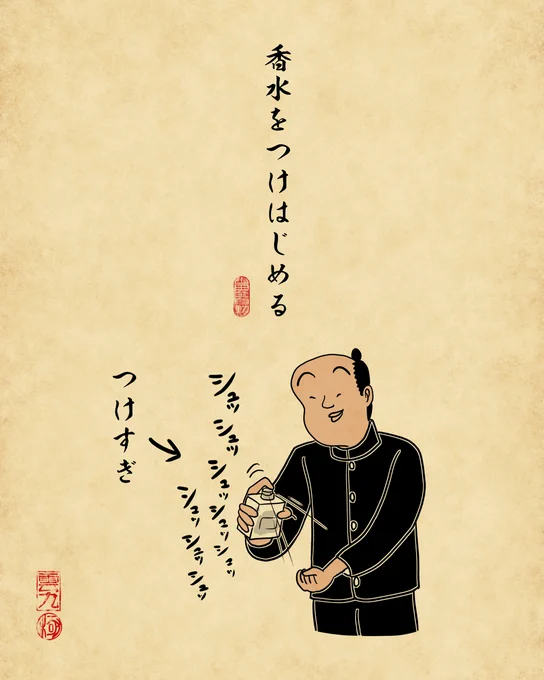 香水をつけはじめる
シュッ
シュッ
シュッシュッシュッ
シュッシュッシュッ
つけすぎ